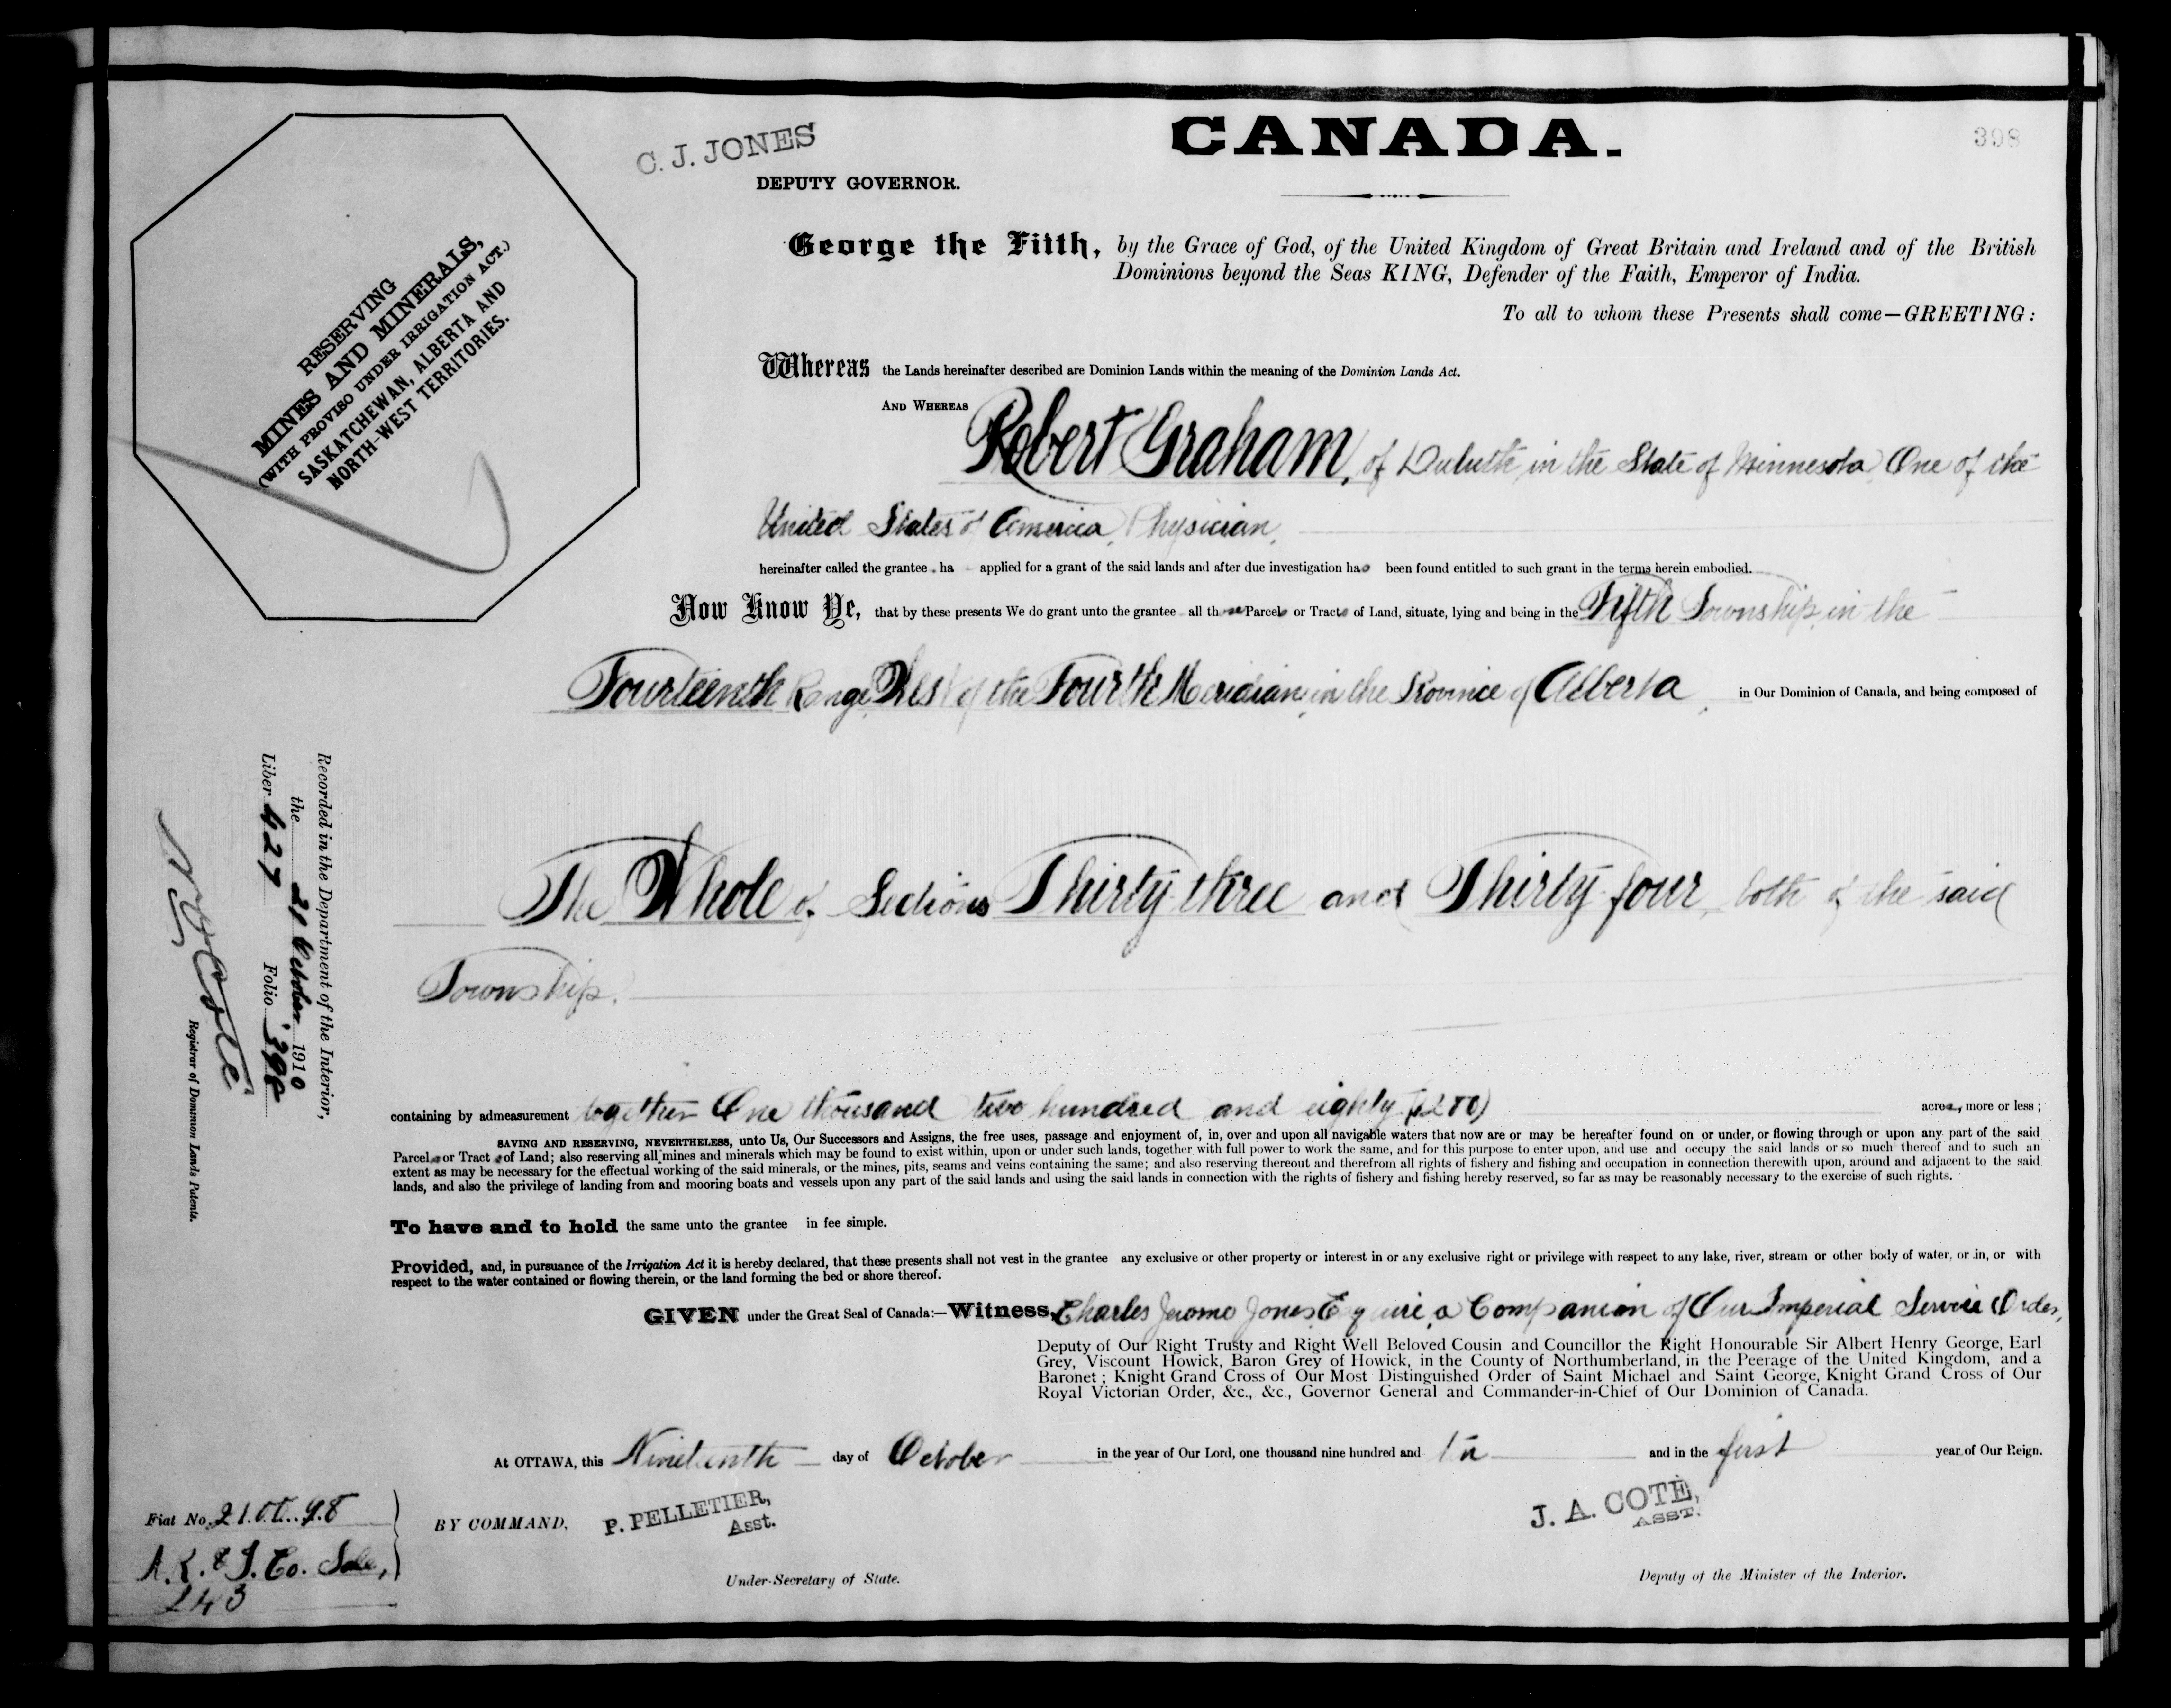 CANADA.
398
C. J. JONES
DEPUTY GOVERNOR.
RESERVING
MINES AND MINERALS,
(WITH PROVISO UNDER IRRIGATION ACT.)
SASKATCHEWAN, ALBERTA AND
NORTH-WEST TERRITORIES.
George the Fifth, by the Grace of God, of the United Kingdom of Great Britain and Ireland and of the British
Dominions beyond the Seas KING, Defender of the Faith, Emperor of India.
To all to whom these Presents shall come—GREETING:
Whereas the Lands hereinafter described are Dominion Lands within the meaning of the Dominion Lands Act.
AND WHEREAS Robert Graham, of Duluth, in the State of Minnesota, One of the
United States of America, Physician,
hereinafter called the grantee, ha applied for a grant of the said lands and after due investigation has been found entitled to such grant in the terms herein embodied.
Now Know Ye, that by these presents We do grant unto the grantee all those Parcels or Tracts of Land, situate, lying and being in the Fifth Township, in the
Fourteenth Range, West of the Fourth Meridian, in the Province of Alberta, in Our Dominion of Canada, and being composed of
The Whole of Sections Thirty-three and Thirty-four, both of the said
Township.
containing by admeasurement together One thousand two hundred and eighty (1280) acres, more or less;
SAVING AND RESERVING, NEVERTHELESS, unto Us, Our Successors and Assigns, the free uses, passage and enjoyment of, in, over and upon all navigable waters that now are or may be hereafter found on or under, or flowing through or upon any part of the said
Parcels or Tracts of Land; also reserving all mines and minerals which may be found to exist within, upon or under such lands, together with full power to work the same, and for this purpose to enter upon, and use and occupy the said lands or so much thereof and to such an
extent as may be necessary for the effectual working of the said minerals, or the mines, pits, seams and veins containing the same; and also reserving thereout and therefrom all rights of fishery and fishing and occupation in connection therewith upon, around and adjacent to the said
lands, and also the privilege of landing from and mooring boats and vessels upon any part of the said lands and using the said lands in connection with the rights of fishery and fishing hereby reserved, so far as may be reasonably necessary to the exercise of such rights.
To have and to hold the same unto the grantee in fee simple.
Provided, and, in pursuance of the Irrigation Act it is hereby declared, that these presents shall not vest in the grantee any exclusive or other property or interest in or any exclusive right or privilege with respect to any lake, river, stream or other body of water, or in, or with
respect to the water contained or flowing therein, or the land forming the bed or shore thereof.
GIVEN under the Great Seal of Canada:—Witness, Charles Jerome Jones, Esquire, a Companion of Our Imperial Service Order,
Deputy of Our Right Trusty and Right Well Beloved Cousin and Councillor the Right Honourable Sir Albert Henry George, Earl
Grey, Viscount Howick, Baron Grey of Howick, in the County of Northumberland, in the Peerage of the United Kingdom, and a
Baronet; Knight Grand Cross of Our Most Distinguished Order of Saint Michael and Saint George, Knight Grand Cross of Our
Royal Victorian Order, &c., &c., Governor General and Commander-in-Chief of Our Dominion of Canada.
At OTTAWA, this Nineteenth day of October in the year of Our Lord, one thousand nine hundred and ten and in the first year of Our Reign.
BY COMMAND, P. PELLETIER,
Asst.
Under-Secretary of State.
J. A. COTÉ,
ASST.
Deputy of the Minister of the Interior.
Recorded in the Department of the Interior,
the 21 October 1910
Liber 427 Folio 398
Coté
Registrar of Dominion Lands Patents.
Fiat No.
Co. Sale,
243